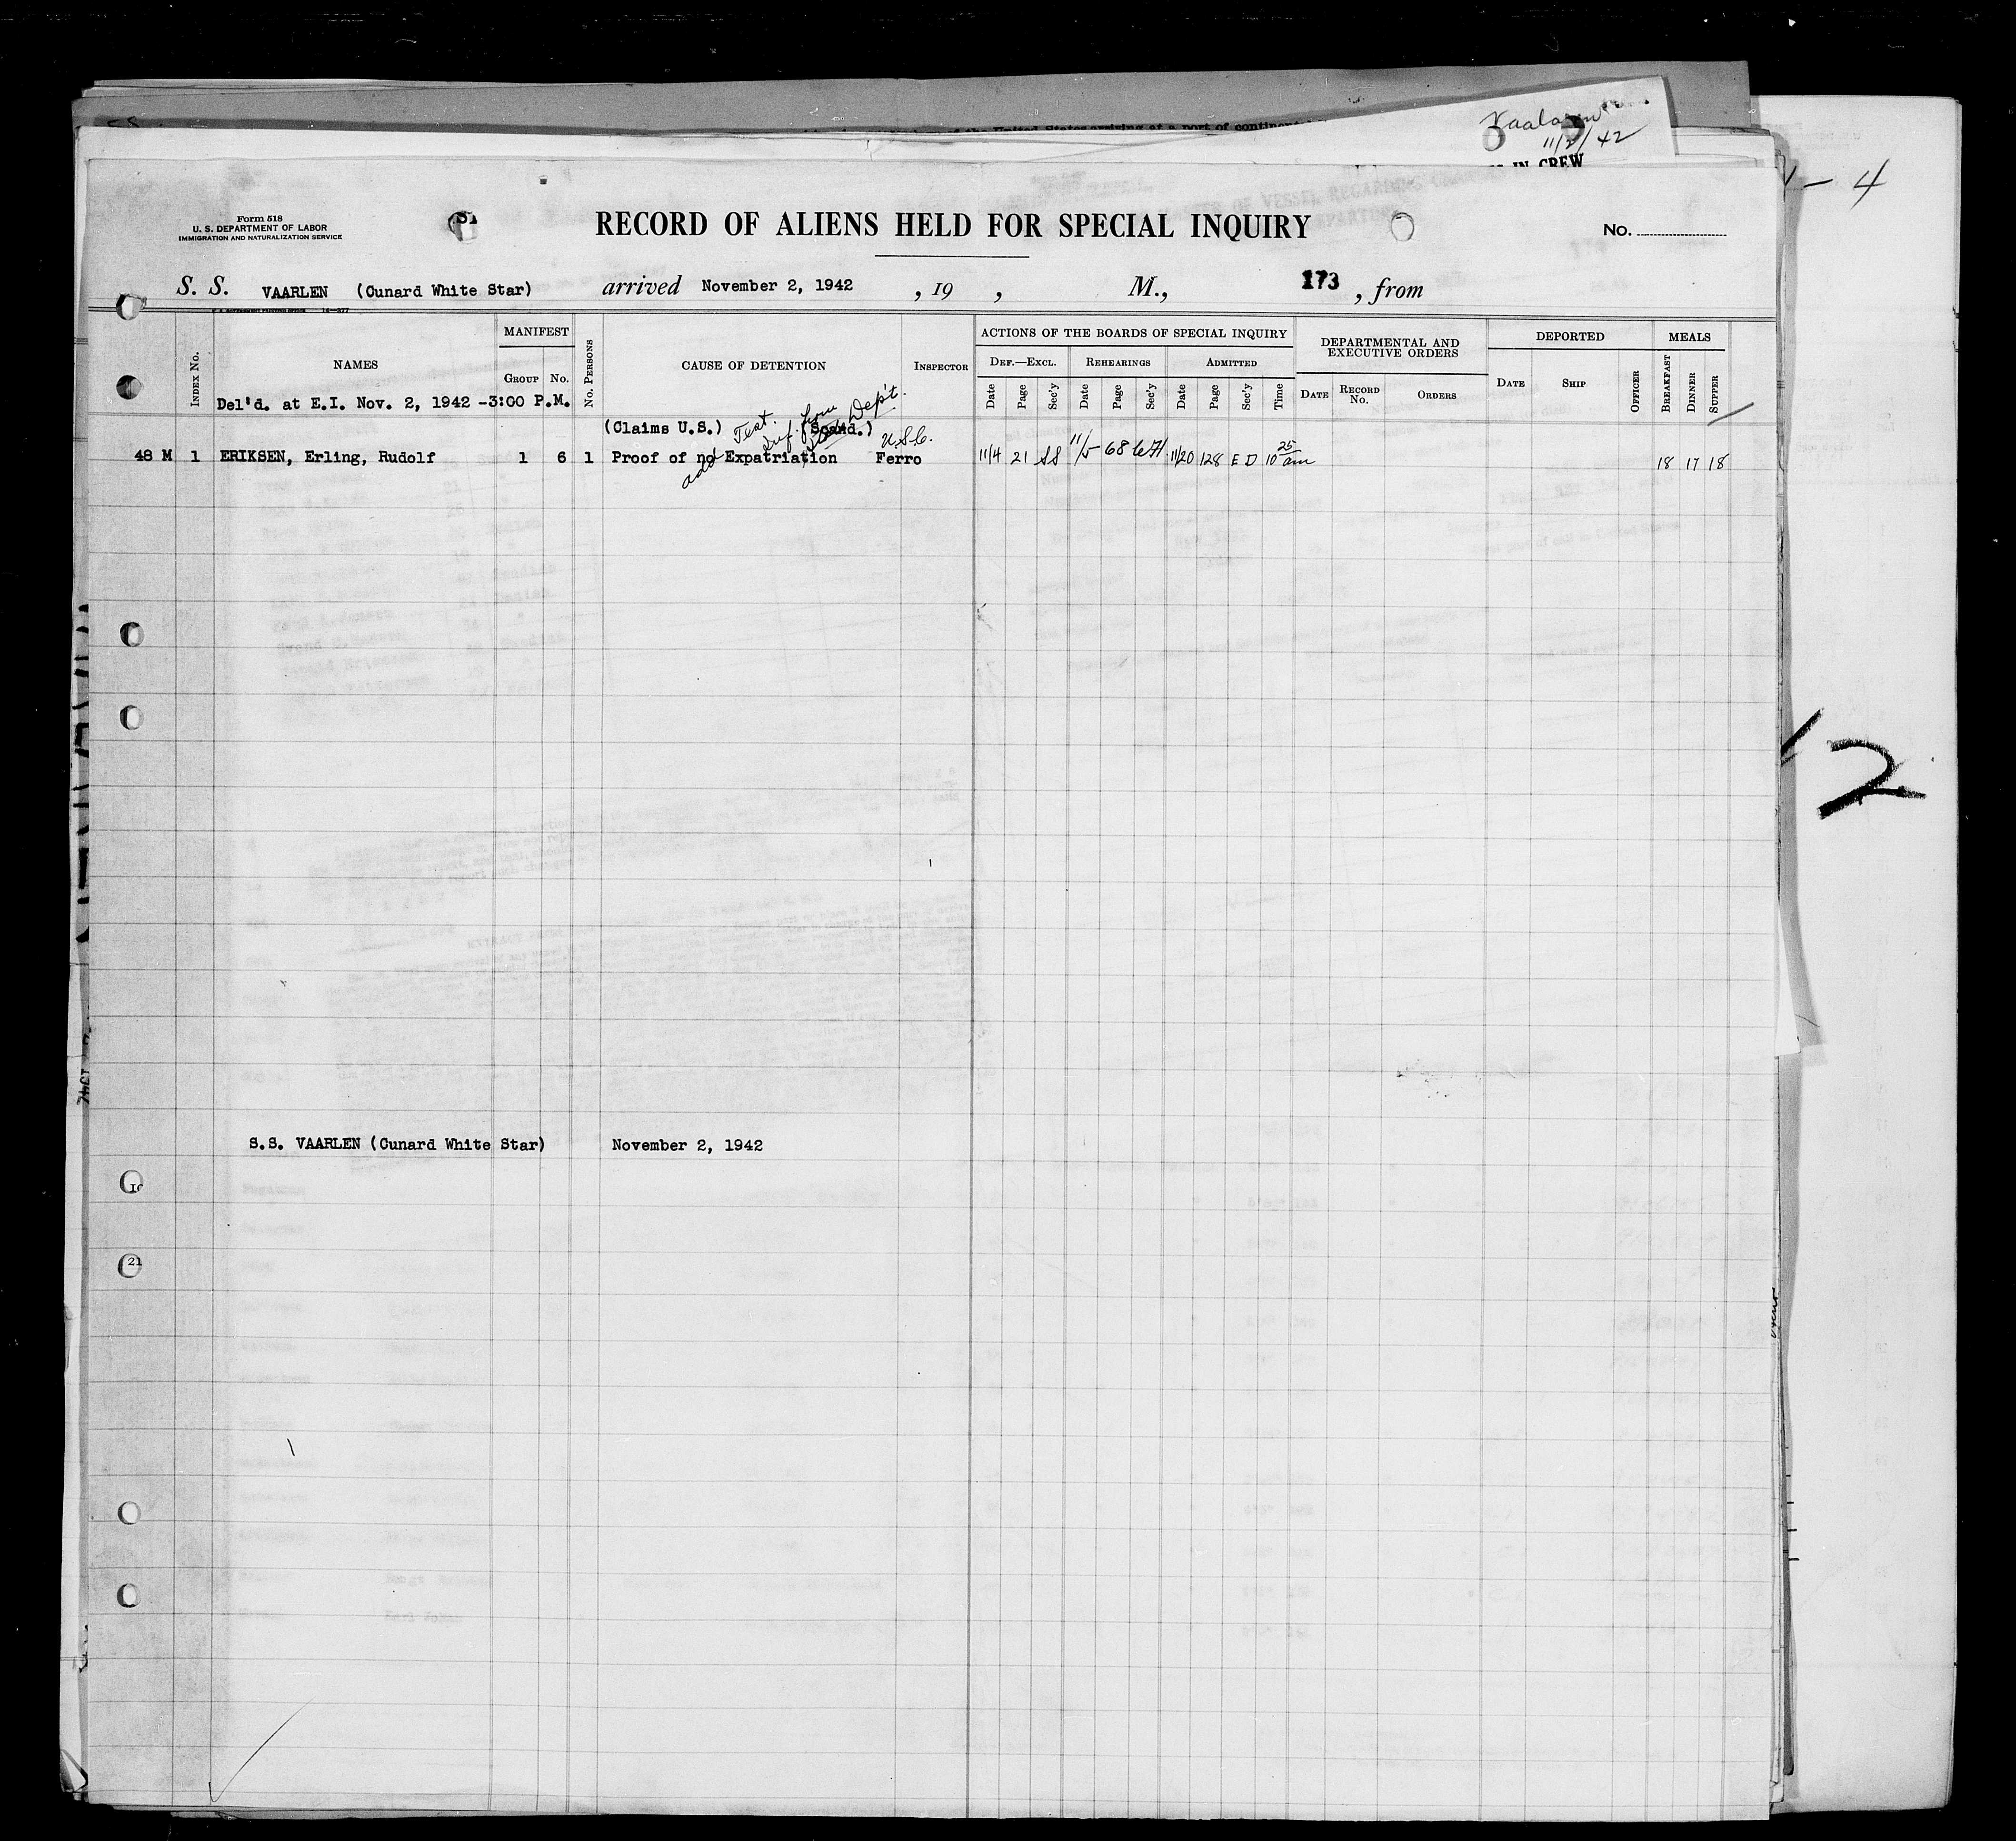 Vaalaren
11/2/42
IN CREW
- 4
Form 518
U. S. DEPARTMENT OF LABOR
IMMIGRATION AND NATURALIZATION SERVICE
RECORD OF ALIENS HELD FOR SPECIAL INQUIRY
No.
S. S. VAARLEN (Cunard White Star) arrived November 2, 1942 , 19 , M., 173 , from
INDEX No.
NAMES
MANIFEST
GROUP No.
No. PERSONS
CAUSE OF DETENTION
INSPECTOR
ACTIONS OF THE BOARDS OF SPECIAL INQUIRY
DEF.—EXCL. REHEARINGS ADMITTED
Date Page Sec'y Date Page Sec'y Date Page Sec'y Time
DEPARTMENTAL AND EXECUTIVE ORDERS
DATE RECORD No. ORDERS
DEPORTED
DATE SHIP OFFICER
MEALS
BREAKFAST DINNER SUPPER
Del'd. at E.I. Nov. 2, 1942 -3:00 P.M.
Test. Inf. from State Dep't.
(Claims U.S.) (Scand.) U.S.C.
48 M 1 ERIKSEN, Erling, Rudolf 1 6 1 Proof of no Expatriation Ferro 11/4 21 SS 11/5 68 11/20 128 E D 10 25 am 18 17 18
add
2
S.S. VAARLEN (Cunard White Star) November 2, 1942
21